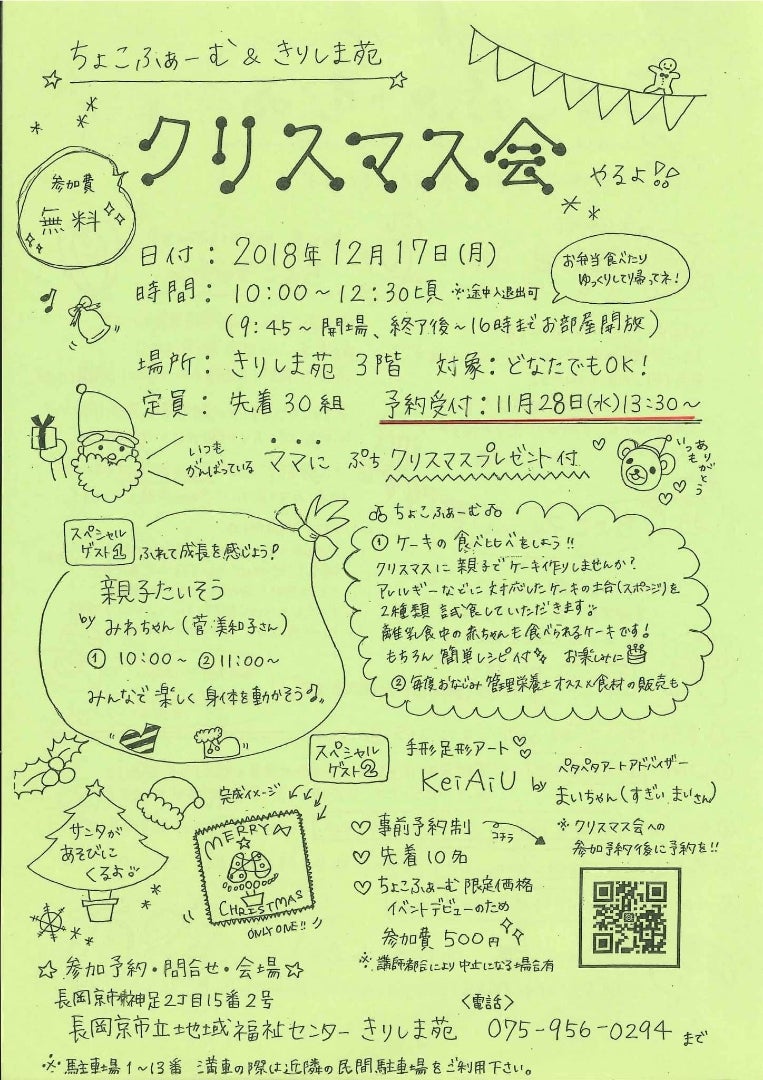 ちょこふぁーむ & きりしま苑
クリスマス会 やるよ!!
参加費
無料
日付：2018年12月17日(月)
時間：10:00～12:30頃 ※途中入退出可
お弁当食べたり
ゆっくりしてり帰ってネ！
(9:45～開場、終了後～16時までお部屋開放)
場所：きりしま苑 3階 対象：どなたでもOK！
定員：先着30組 予約受付：11月28日(水)13:30～
いつも
がんばっている ママに ぷち クリスマスプレゼント付
いつも
ありがとう
スペシャル
ゲスト1 ふれて成長を感じよう！
親子たいそう
by みわちゃん(菅 美和子さん)
① 10:00～ ②11:00～
みんなで 楽しく 身体を動かそう♪
ちょこふぁーむ
① ケーキの食べ比べをしよう!!
クリスマスに親子でケーキ作りしませんか？
アレルギーなどに対応したケーキの土台(スポンジ)を
2種類 試食していただきます
離乳食中の赤ちゃんも食べられるケーキです！
もちろん 簡単レシピ付 お楽しみに
② 毎度おなじみ 管理栄養士オススメ食材の販売も
スペシャル
ゲスト2
手形足形アート
KeiAiU by
ペタペタアートアドバイザー
まいちゃん(すぎい まいさん)
♡ 事前予約制 コチラ
♡ 先着10名
♡ ちょこふぁーむ限定価格
イベントデビューのため
参加費 500円
※講師都合により中止になる場合有
※クリスマス会への
参加予約後に予約を!!
サンタが
あそびに
くるよ
完成イメージ
MERRY
CHRISTMAS
ONLY ONE!!
☆ 参加予約・問合せ・会場 ☆
長岡京市神足2丁目15番2号
長岡京市立地域福祉センター きりしま苑
〈電話〉
075-956-0294 まで
※駐車場1～13番 満車の際は近隣の民間駐車場をご利用下さい。